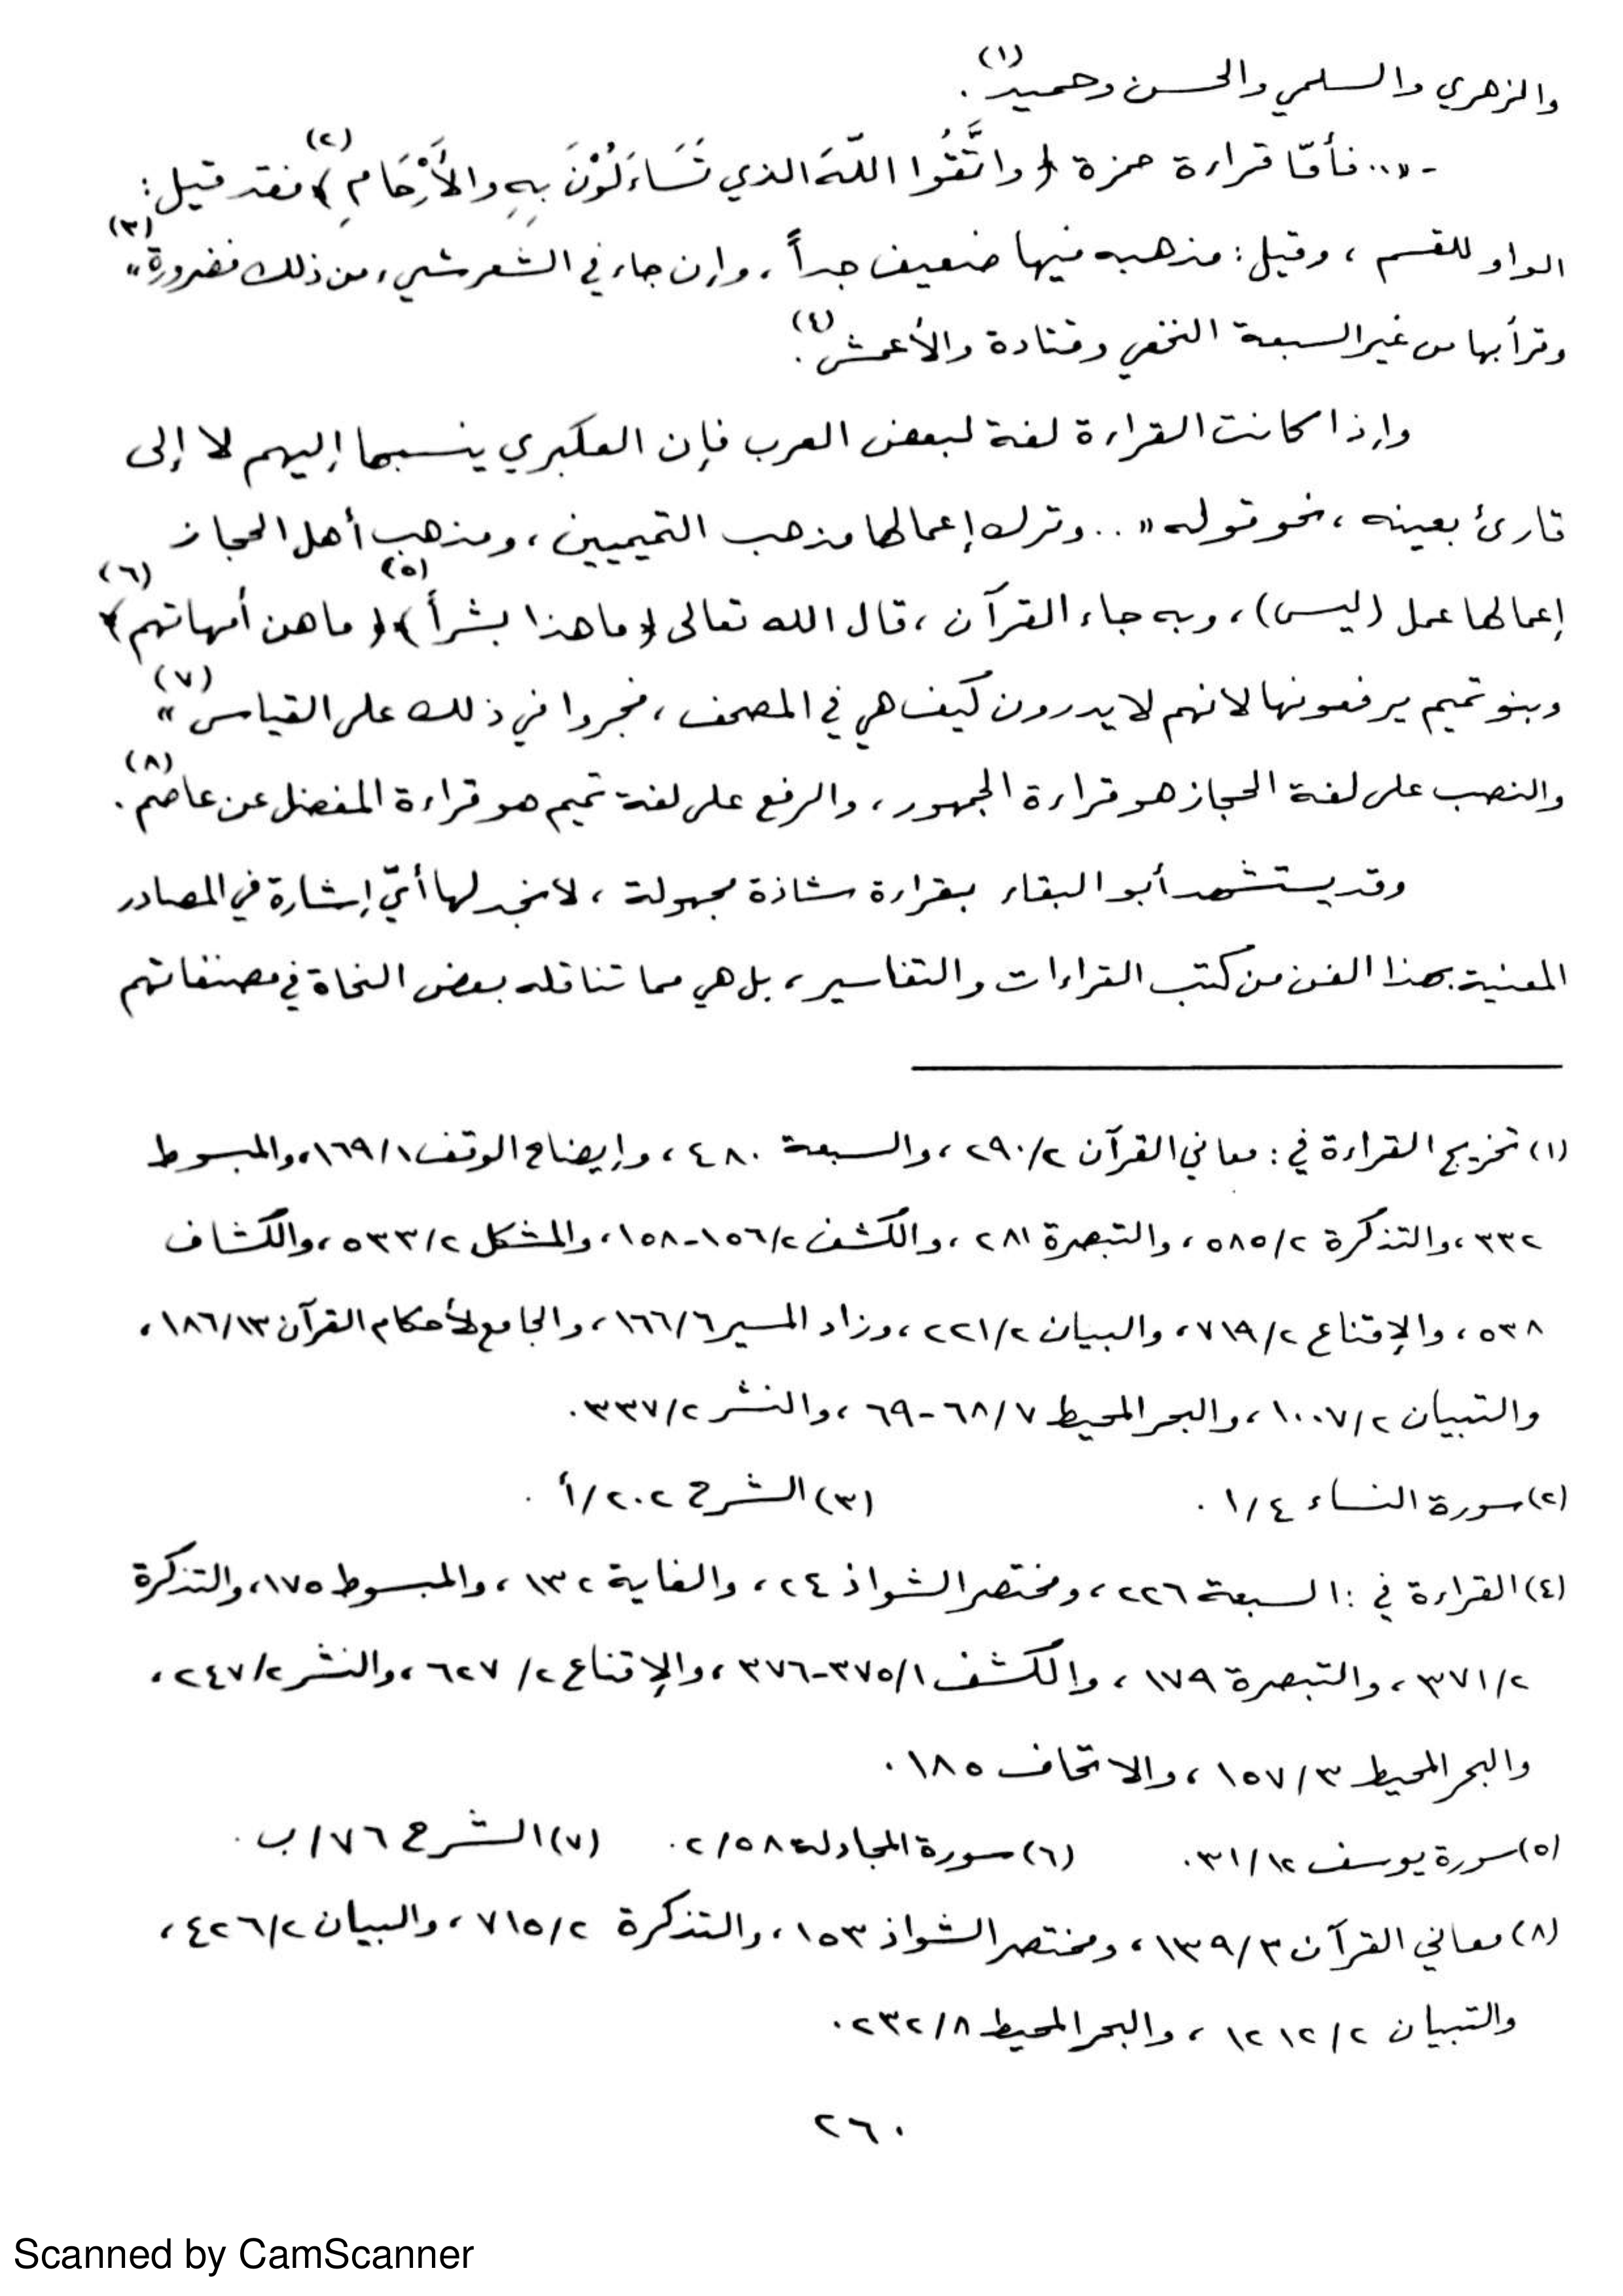 والزهري والسلمي والحسن وحميد(١) .
- «.. فأمّا قراءة حمزة ﴿ واتَّقُوا اللّهَ الذي تَسَاءَلُوْنَ بِهِ والأَرْحَامِ ﴾(٢) فقد قيل :
الواو للقسم ، وقيل : مذهبه فيها ضعيف جداً ، وإن جاء في الشعر شيء من ذلك فضرورة»(٣)
وقرأ بها من غير السبعة النخعي وقتادة والأعمش(٤) .
وإذا كانت القراءة لغة لبعض العرب فإن العكبري ينسبها إليهم لا إلى
قارئ بعينه ، نحو قوله « .. وترك إعمالها مذهب التميميين ، ومذهب أهل الحجاز
إعمالها عمل (ليس) ، وبه جاء القرآن ، قال الله تعالى ﴿ ما هذا بشراً ﴾(٥) ﴿ ما هن أمهاتهم ﴾(٦)
وبنو تميم يرفعونها لانهم لا يدرون كيف هي في المصحف ، فجروا في ذلك على القياس »(٧)
والنصب على لغة الحجاز هو قراءة الجمهور ، والرفع على لغة تميم هو قراءة المفضل عن عاصم(٨) .
وقد يستشهد أبو البقاء بقراءة شاذة مجهولة ، لا نجد لها أيّ إشارة في المصادر
المعنية بهذا الفن من كتب القراءات والتفاسير ، بل هي مما تناقله بعض النحاة في مصنفاتهم
(١) تخريج القراءة في : معاني القرآن ٢/٢٩٠ ، والسبعة ٤٨٠ ، وإيضاح الوقف ١/١٦٩ ، والمبسوط
٣٣٢ ، والتذكرة ٢/٥٨٥ ، والتبصرة ٢٨١ ، والكشف ٢/١٥٦-١٥٨ ، والمشكل ٢/٥٣٣ ، والكشاف
٥٣٨ ، والإقناع ٢/٧١٩ ، والبيان ٢/٢٢١ ، وزاد المسير ٦/١٦٦ ، والجامع لأحكام القرآن ١٣/١٨٦ ،
والتبيان ٢/١٠٠٧ ، والبحر المحيط ٧/٦٨-٦٩ ، والنشر ٢/٣٣٧ .
(٢) سورة النساء ٤/١ . (٣) الشرح ٢٠٢/أ .
(٤) القراءة في : السبعة ٢٢٦ ، ومختصر الشواذ ٢٤ ، والغاية ١٣٢ ، والمبسوط ١٧٥ ، والتذكرة
٢/٣٧١ ، والتبصرة ١٧٩ ، والكشف ١/٣٧٥-٣٧٦ ، والإقناع ٢/٦٢٧ ، والنشر ٢/٢٤٧ ،
والبحر المحيط ٣/١٥٧ ، والاتحاف ١٨٥ .
(٥) سورة يوسف ١٢/٣١ . (٦) سورة المجادلة ٥٨/٢ . (٧) الشرح ٧٦/ب .
(٨) معاني القرآن ٣/١٣٩ ، ومختصر الشواذ ١٥٣ ، والتذكرة ٢/٧١٥ ، والبيان ٢/٤٢٦ ،
والتبيان ٢/١٢١٢ ، والبحر المحيط ٨/٢٣٢ .
٢٦٠
Scanned by CamScanner